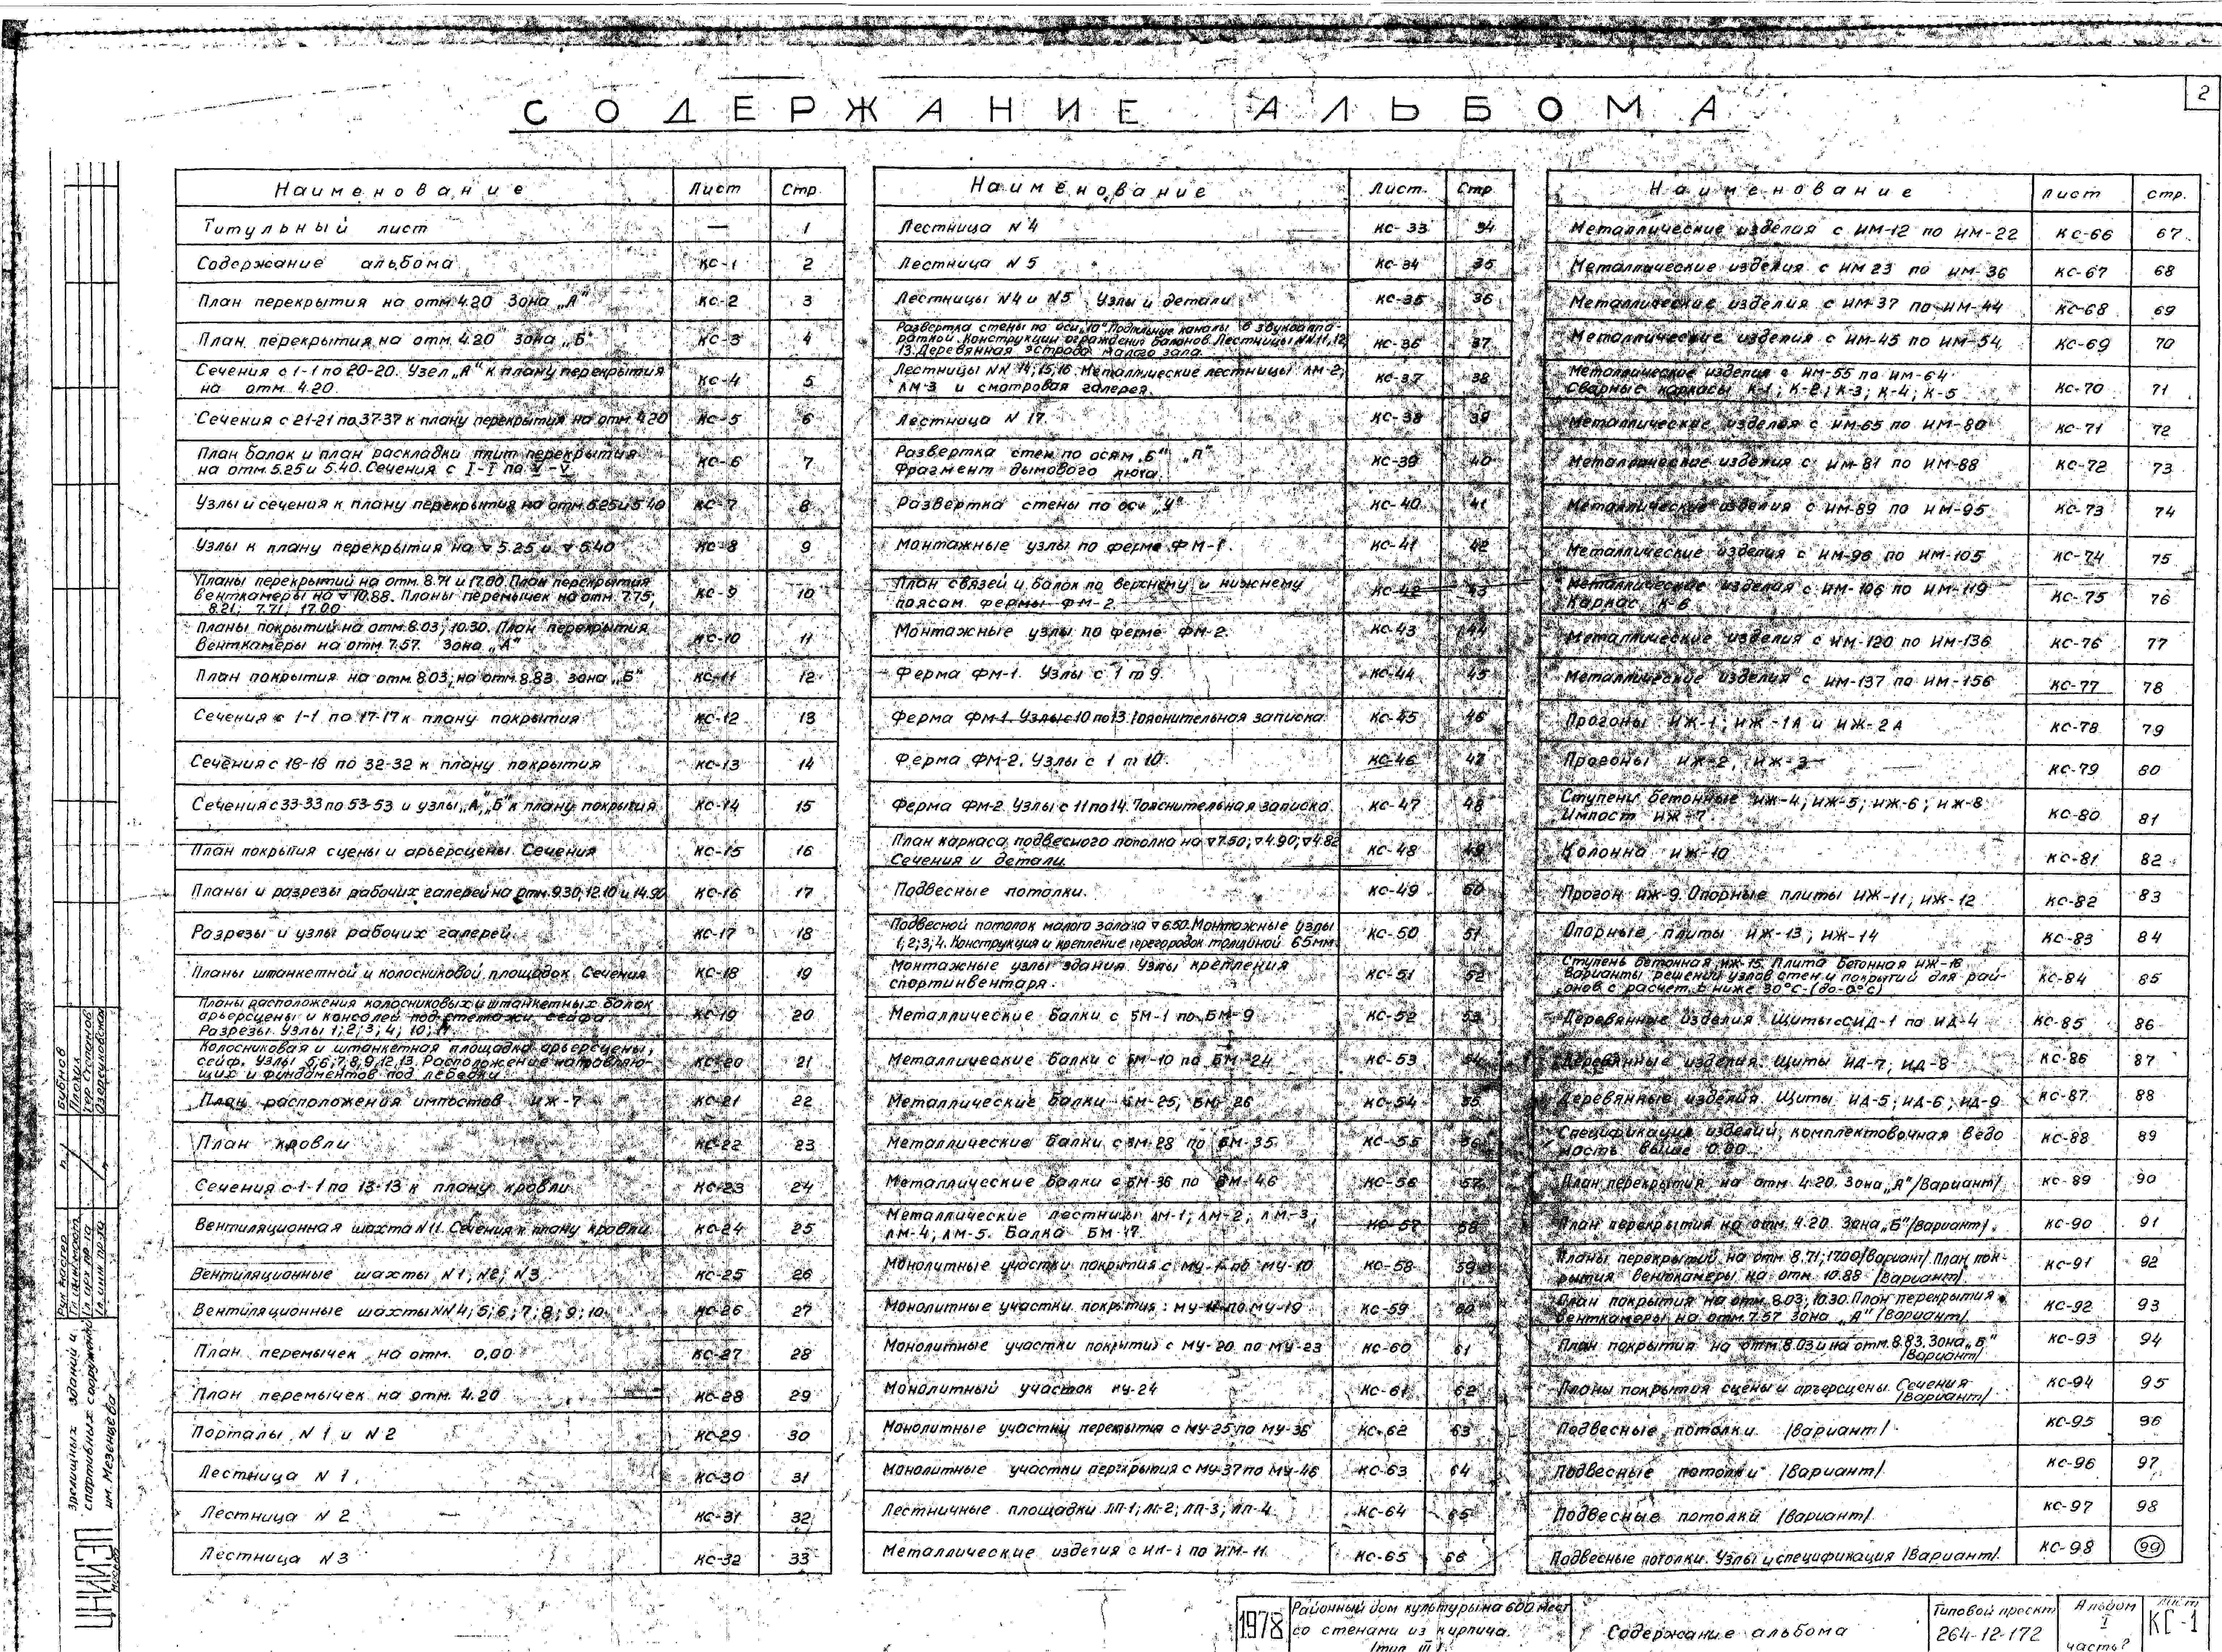 2
СОДЕРЖАНИЕ АЛЬБОМА
Наименование Лист Стр.
Титульный лист — 1
Содержание альбома КС-1 2
План перекрытия на отм. 4.20 Зона „А" КС-2 3
План перекрытия на отм. 4.20 Зона „Б" КС-3 4
Сечения с 1-1 по 20-20. Узел „А" к плану перекрытия
на отм. 4.20. КС-4 5
Сечения с 21-21 по 37-37 к плану перекрытия на отм. 4.20 КС-5 6
План балок и план раскладки плит перекрытия
на отм. 5.25 и 5.40. Сечения с I-I по V-V КС-6 7
Узлы и сечения к плану перекрытия на отм. 5.25 и 5.40 КС-7 8
Узлы к плану перекрытия на ▽ 5.25 и ▽ 5.40 КС-8 9
Планы перекрытий на отм. 8.71 и 17.00. План перекрытия
венткамеры на ▽ 10.88. Планы перемычек на отм. 7.75;
8.21; 7.71; 17.00 КС-9 10
Планы покрытий на отм. 8.03; 10.30. План перекрытия
венткамеры на отм. 7.57. Зона „А" КС-10 11
План покрытия на отм. 8.03; на отм. 8.83. Зона „Б" КС-11 12
Сечения с 1-1 по 17-17 к плану покрытия КС-12 13
Сечения с 18-18 по 32-32 к плану покрытия КС-13 14
Сечения с 33-33 по 53-53 и узлы „А", „Б" к плану покрытия КС-14 15
План покрытия сцены и арьерсцены. Сечения КС-15 16
Планы и разрезы рабочих галерей на отм. 9.30; 12.10 и 14.90 КС-16 17
Разрезы и узлы рабочих галерей. КС-17 18
Планы штанкетной и колосниковой площадок. Сечения КС-18 19
Планы расположения колосниковых и штанкетных балок
арьерсцены и консолей под стеллажи сейфа.
Разрезы. Узлы 1; 2; 3; 4; 10; 11 КС-19 20
Колосниковая и штанкетная площадка арьерсцены;
сейф. Узлы 5,6,7,8,9,12,13. Расположение направляю-
щих и фундаментов под лебедки. КС-20 21
План расположения импостов ИЖ-7 КС-21 22
План кровли КС-22 23
Сечения с 1-1 по 13-13 к плану кровли КС-23 24
Вентиляционная шахта N11. Сечения к плану кровли КС-24 25
Вентиляционные шахты N1; N2; N3 КС-25 26
Вентиляционные шахты NN 4; 5; 6; 7; 8; 9; 10 КС-26 27
План перемычек на отм. 0,00 КС-27 28
План перемычек на отм. 4.20 КС-28 29
Порталы N1 и N2 КС-29 30
Лестница N1 КС-30 31
Лестница N2 КС-31 32
Лестница N3 КС-32 33
Наименование Лист. Стр.
Лестница N4 КС-33 34
Лестница N5 КС-34 35
Лестницы N4 и N5. Узлы и детали КС-35 36
Развертка стены по оси „10". Подпольные каналы в звукоаппа-
ратной. Конструкции ограждения балконов. Лестницы NN 11, 12,
13. Деревянная эстрада малого зала. КС-36 37
Лестницы NN 14, 15, 16. Металлические лестницы ЛМ-2;
ЛМ-3 и смотровая галерея. КС-37 38
Лестница N 17 КС-38 39
Развертка стен по осям „Б" „П"
Фрагмент дымового люка. КС-39 40
Развертка стены по оси „У" КС-40 41
Монтажные узлы по ферме ФМ-1. КС-41 42
План связей и балок по верхнему и нижнему
поясам фермы ФМ-2. КС-42 43
Монтажные узлы по ферме ФМ-2. КС-43 44
Ферма ФМ-1. Узлы с 1 по 9. КС-44 45
Ферма ФМ-1. Узлы с 10 по 13. Пояснительная записка КС-45 46
Ферма ФМ-2. Узлы с 1 по 10. КС-46 47
Ферма ФМ-2. Узлы с 11 по 14. Пояснительная записка. КС-47 48
План каркаса подвесного потолка на ▽ 7.50; ▽ 4.90; ▽ 4.82
Сечения и детали. КС-48 49
Подвесные потолки. КС-49 50
Подвесной потолок малого зала на ▽ 6.50. Монтажные узлы
1; 2; 3; 4. Конструкция и крепление перегородок толщиной 65мм КС-50 51
Монтажные узлы здания. Узлы крепления
спортинвентаря. КС-51 52
Металлические балки с БМ-1 по БМ-9 КС-52 53
Металлические балки с БМ-10 по БМ-24 КС-53 54
Металлические балки БМ-25; БМ-26 КС-54 55
Металлические балки с БМ-28 по БМ-35 КС-55 56
Металлические балки с БМ-36 по БМ-46 КС-56 57
Металлические лестницы ЛМ-1; ЛМ-2; ЛМ-3;
ЛМ-4; ЛМ-5. Балка БМ-17 КС-57 58
Монолитные участки покрытия с МУ-1 по МУ-10 КС-58 59
Монолитные участки покрытия с МУ-11 по МУ-19 КС-59 60
Монолитные участки покрытия с МУ-20 по МУ-23 КС-60 61
Монолитный участок МУ-24 КС-61 62
Монолитные участки перекрытия с МУ-25 по МУ-36 КС-62 63
Монолитные участки перекрытия с МУ-37 по МУ-46 КС-63 64
Лестничные площадки ЛП-1; ЛП-2; ЛП-3; ЛП-4 КС-64 65
Металлические изделия с ИМ-1 по ИМ-11 КС-65 66
Наименование Лист стр.
Металлические изделия с ИМ-12 по ИМ-22 КС-66 67
Металлические изделия с ИМ 23 по ИМ-36 КС-67 68
Металлические изделия с ИМ-37 по ИМ-44 КС-68 69
Металлические изделия с ИМ-45 по ИМ-54 КС-69 70
Металлические изделия с ИМ-55 по ИМ-64
Сварные каркасы К-1; К-2; К-3; К-4; К-5 КС-70 71
Металлические изделия с ИМ-65 по ИМ-80 КС-71 72
Металлические изделия с ИМ-81 по ИМ-88 КС-72 73
Металлические изделия с ИМ-89 по ИМ-95 КС-73 74
Металлические изделия с ИМ-96 по ИМ-105 КС-74 75
Металлические изделия с ИМ-106 по ИМ-119
Каркас К-6 КС-75 76
Металлические изделия с ИМ-120 по ИМ-136 КС-76 77
Металлические изделия с ИМ-137 по ИМ-156 КС-77 78
Прогоны ИЖ-1; ИЖ-1А и ИЖ-2А КС-78 79
Прогоны ИЖ-2; ИЖ-3 КС-79 80
Ступени бетонные ИЖ-4; ИЖ-5; ИЖ-6; ИЖ-8
Импост ИЖ-7. КС-80 81
Колонна ИЖ-10 КС-81 82
Прогон ИЖ-9. Опорные плиты ИЖ-11; ИЖ-12 КС-82 83
Опорные плиты ИЖ-13; ИЖ-14 КС-83 84
Ступень бетонная ИЖ-15. Плита бетонная ИЖ-16
Варианты решений узлов стен и покрытий для рай-
онов с расчет. t ниже 30°С КС-84 85
Деревянные изделия. Щиты с ИД-1 по ИД-4 КС-85 86
Деревянные изделия. Щиты ИД-7; ИД-8 КС-86 87
Деревянные изделия. Щиты ИД-5; ИД-6; ИД-9 КС-87 88
Спецификация изделий, комплектовочная ведо
мость выше 0.00. КС-88 89
План перекрытия на отм. 4.20. Зона „А" /Вариант/ КС-89 90
План перекрытия на отм. 4.20. Зона „Б" /Вариант/. КС-90 91
Планы перекрытий на отм. 8.71; 17.00 /Вариант/. План пок-
рытия венткамеры на отм. 10.88 /Вариант/. КС-91 92
План покрытия на отм. 8.03; 10.30. План перекрытия
венткамеры на отм. 7.57 Зона „А" /Вариант/. КС-92 93
План покрытия на отм. 8.03 и на отм. 8.83. Зона „Б"
/Вариант/ КС-93 94
Планы покрытия сцены и арьерсцены. Сечения
/Вариант/ КС-94 95
Подвесные потолки. /Вариант/ КС-95 96
Подвесные потолки /Вариант/. КС-96 97
Подвесные потолки /Вариант/. КС-97 98
Подвесные потолки. Узлы и спецификация /Вариант/. КС-98 99
Бубнов
Рук. мастер
Гл. инж. пр-та
ЦНИИЭП
Москва
зрелищных зданий и
спортивных сооружений
им. Мезенцева
1978
Районный дом культуры на 600 мест
со стенами из кирпича.
/тип III/
Содержание альбома
Типовой проект
264-12-172
Альбом
I
часть 2
Лист
КС-1